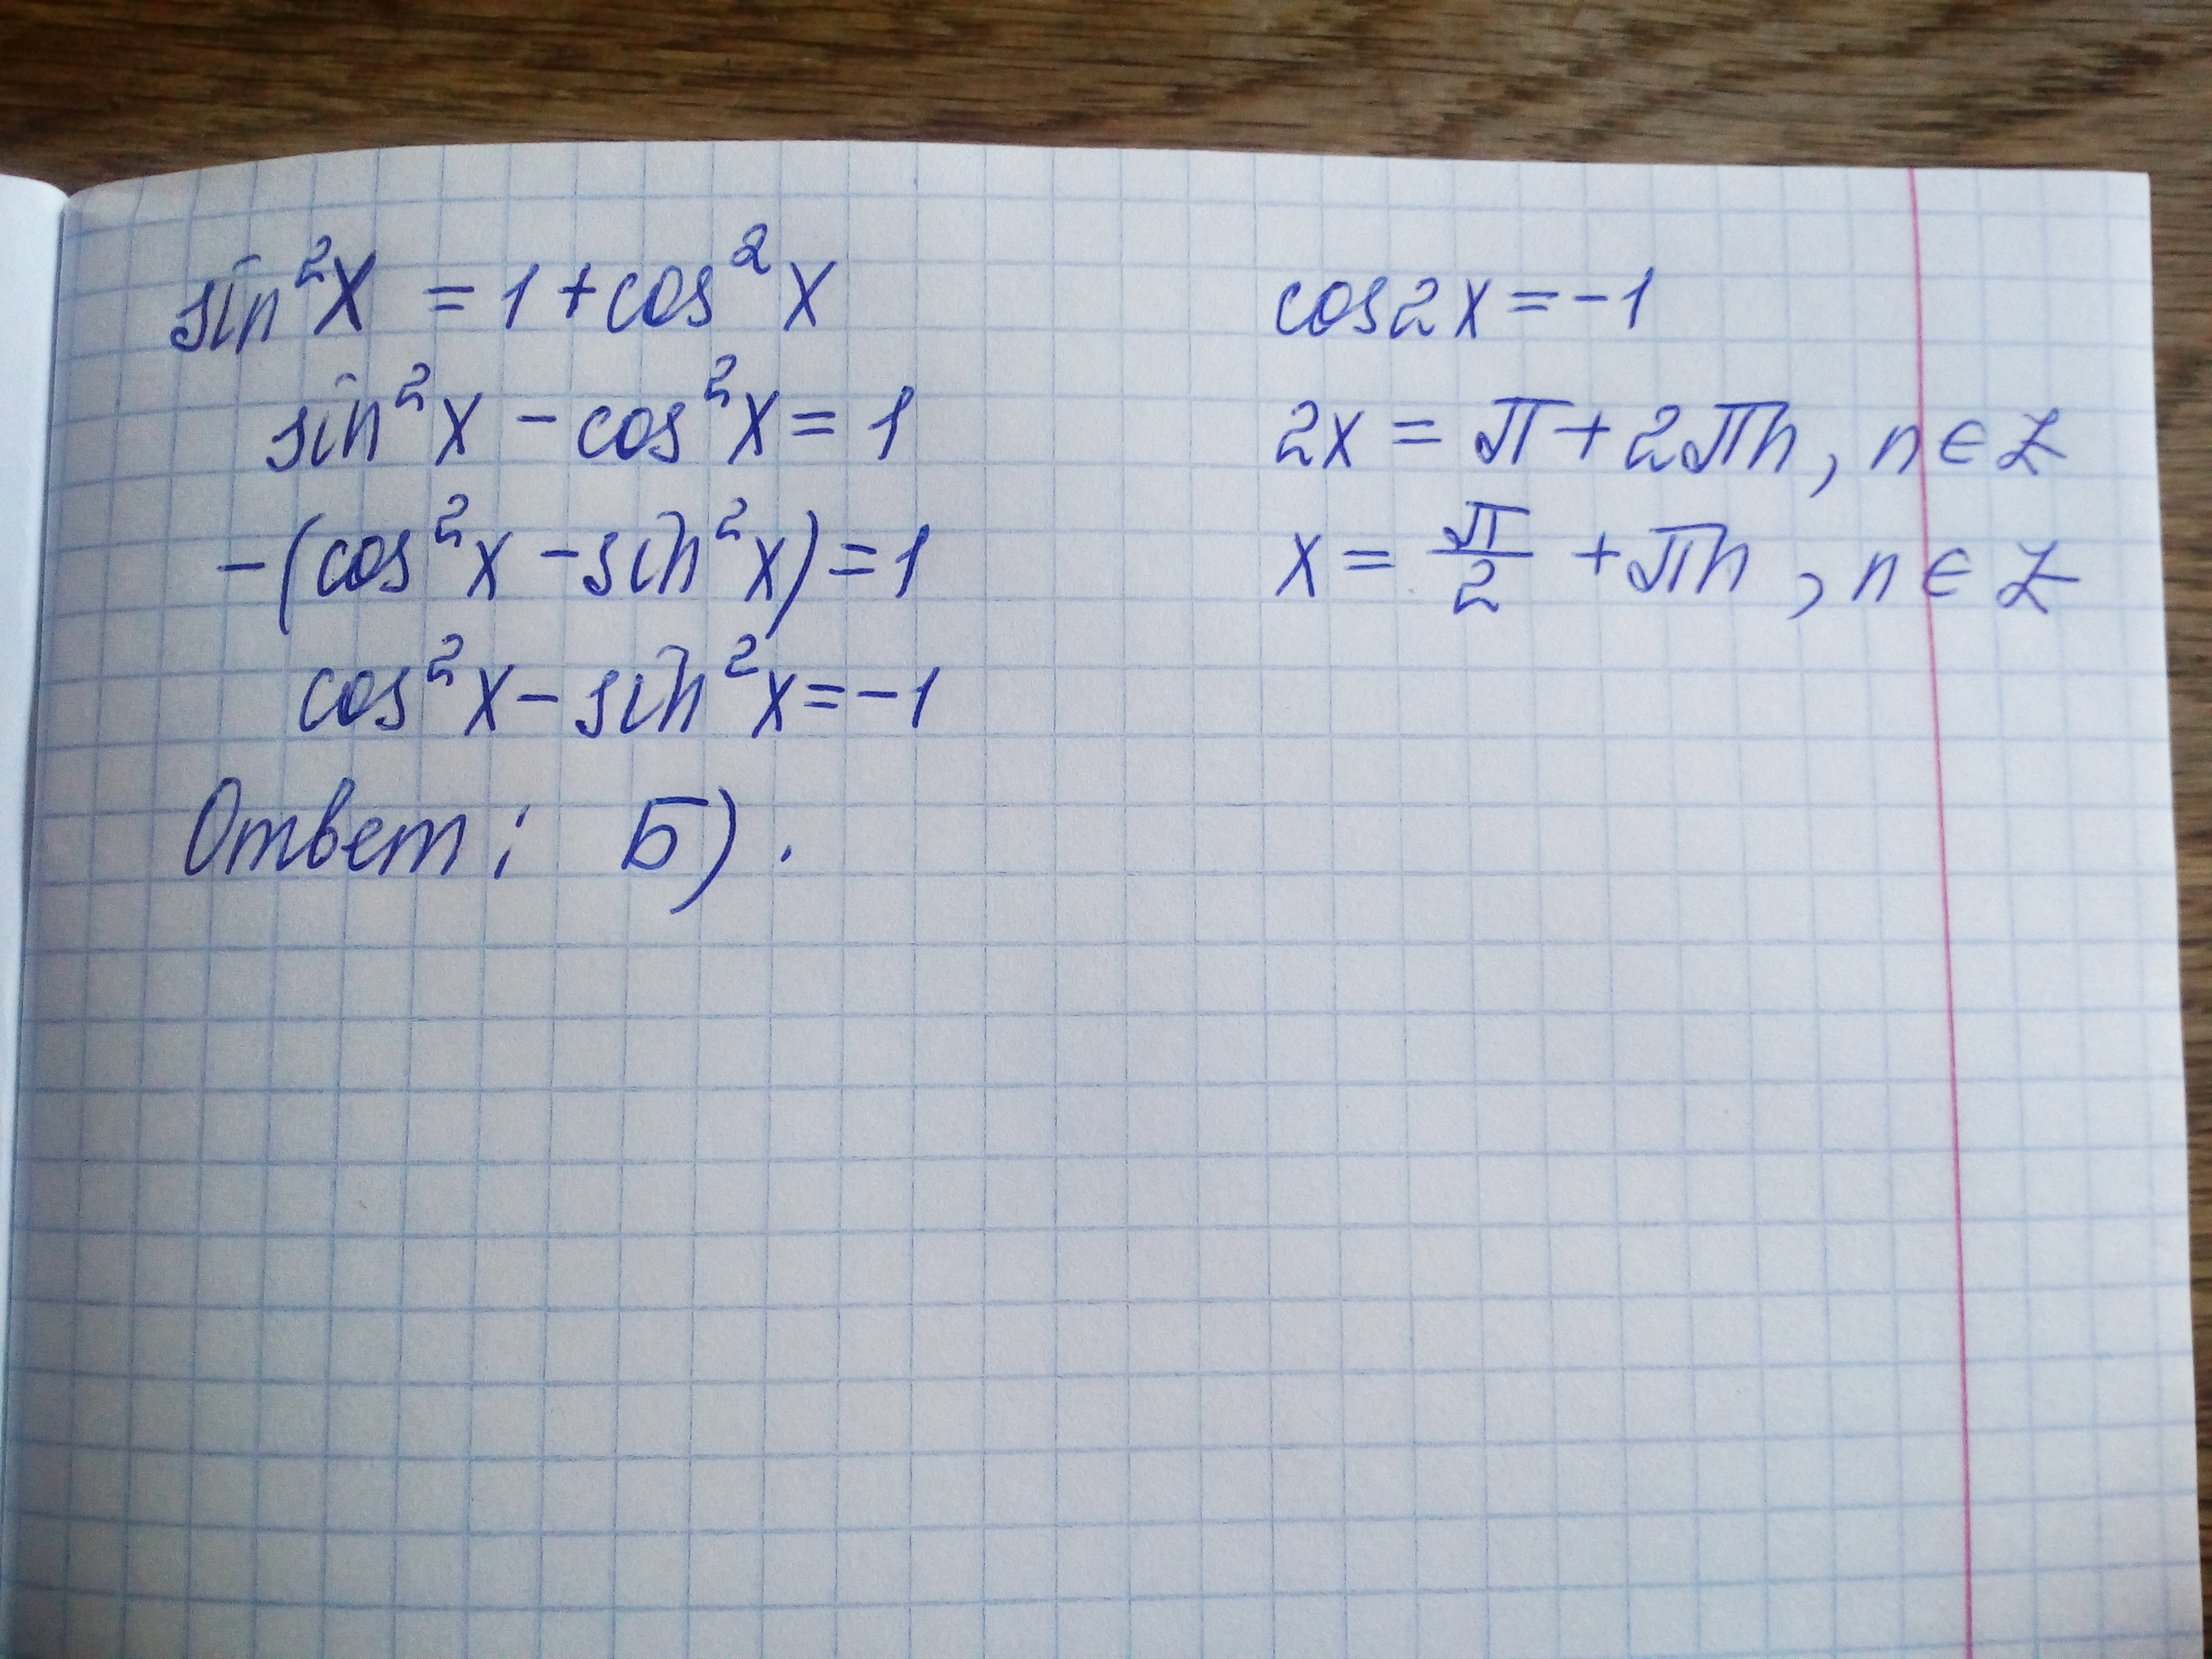 sin²x = 1 + cos²x
sin²x - cos²x = 1
-(cos²x - sin²x) = 1
cos²x - sin²x = -1
Ответ: Б).
cos2x = -1
2x = π + 2πn, n ∈ Z
x = π/2 + πn, n ∈ Z